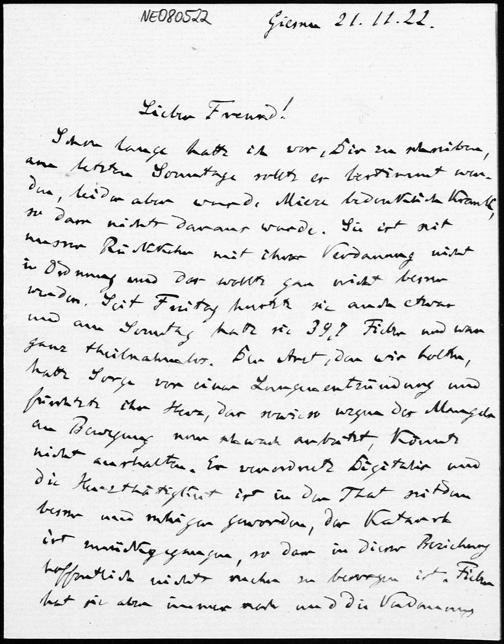 NE080522
Giessen 21.11.22.
Lieber Freund!
Schon lange hatte ich vor, Dir zu schreiben,
am letzten Sonntage sollte es bestimmt wer-
den, leider aber wurde Mieze bedenklich krank,
so dass nichts daraus wurde. Sie ist seit
unserer Rückkehr mit ihrer Verdauung nicht
in Ordnung und das wollte gar nicht besser
werden. Seit Freitag hustete sie auch etwas
und am Sonntag hatte sie 39,7 Fieber und war
ganz theilnahmslos. Der Arzt, den wir holten,
hatte Sorge vor einer Lungenentzündung und
fürchtete ihr Herz, das sowieso wegen des Mangels
an Bewegung nur schwach arbeitet, könnte
nicht aushalten. Er verordnete Digitalis und
die Herzthätigkeit ist in der That seitdem
besser und ruhiger geworden, der Katarrh
ist zurückgegangen, so dass in dieser Beziehung
hoffentlich nichts mehr zu besorgen ist. Fieber
hat sie aber immer noch und die Verdauung